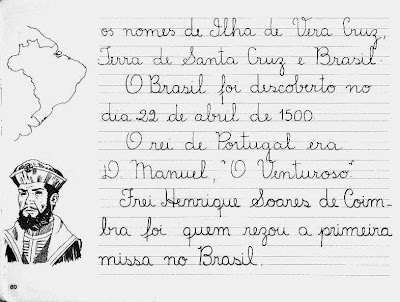 os nomes de Ilha de Vera Cruz,
Terra de Santa Cruz e Brasil.
O Brasil foi descoberto no
dia 22 de abril de 1500.
O rei de Portugal era
D. Manuel, "O Venturoso".
Frei Henrique Soares de Coim-
bra foi quem rezou a primeira
missa no Brasil.
60